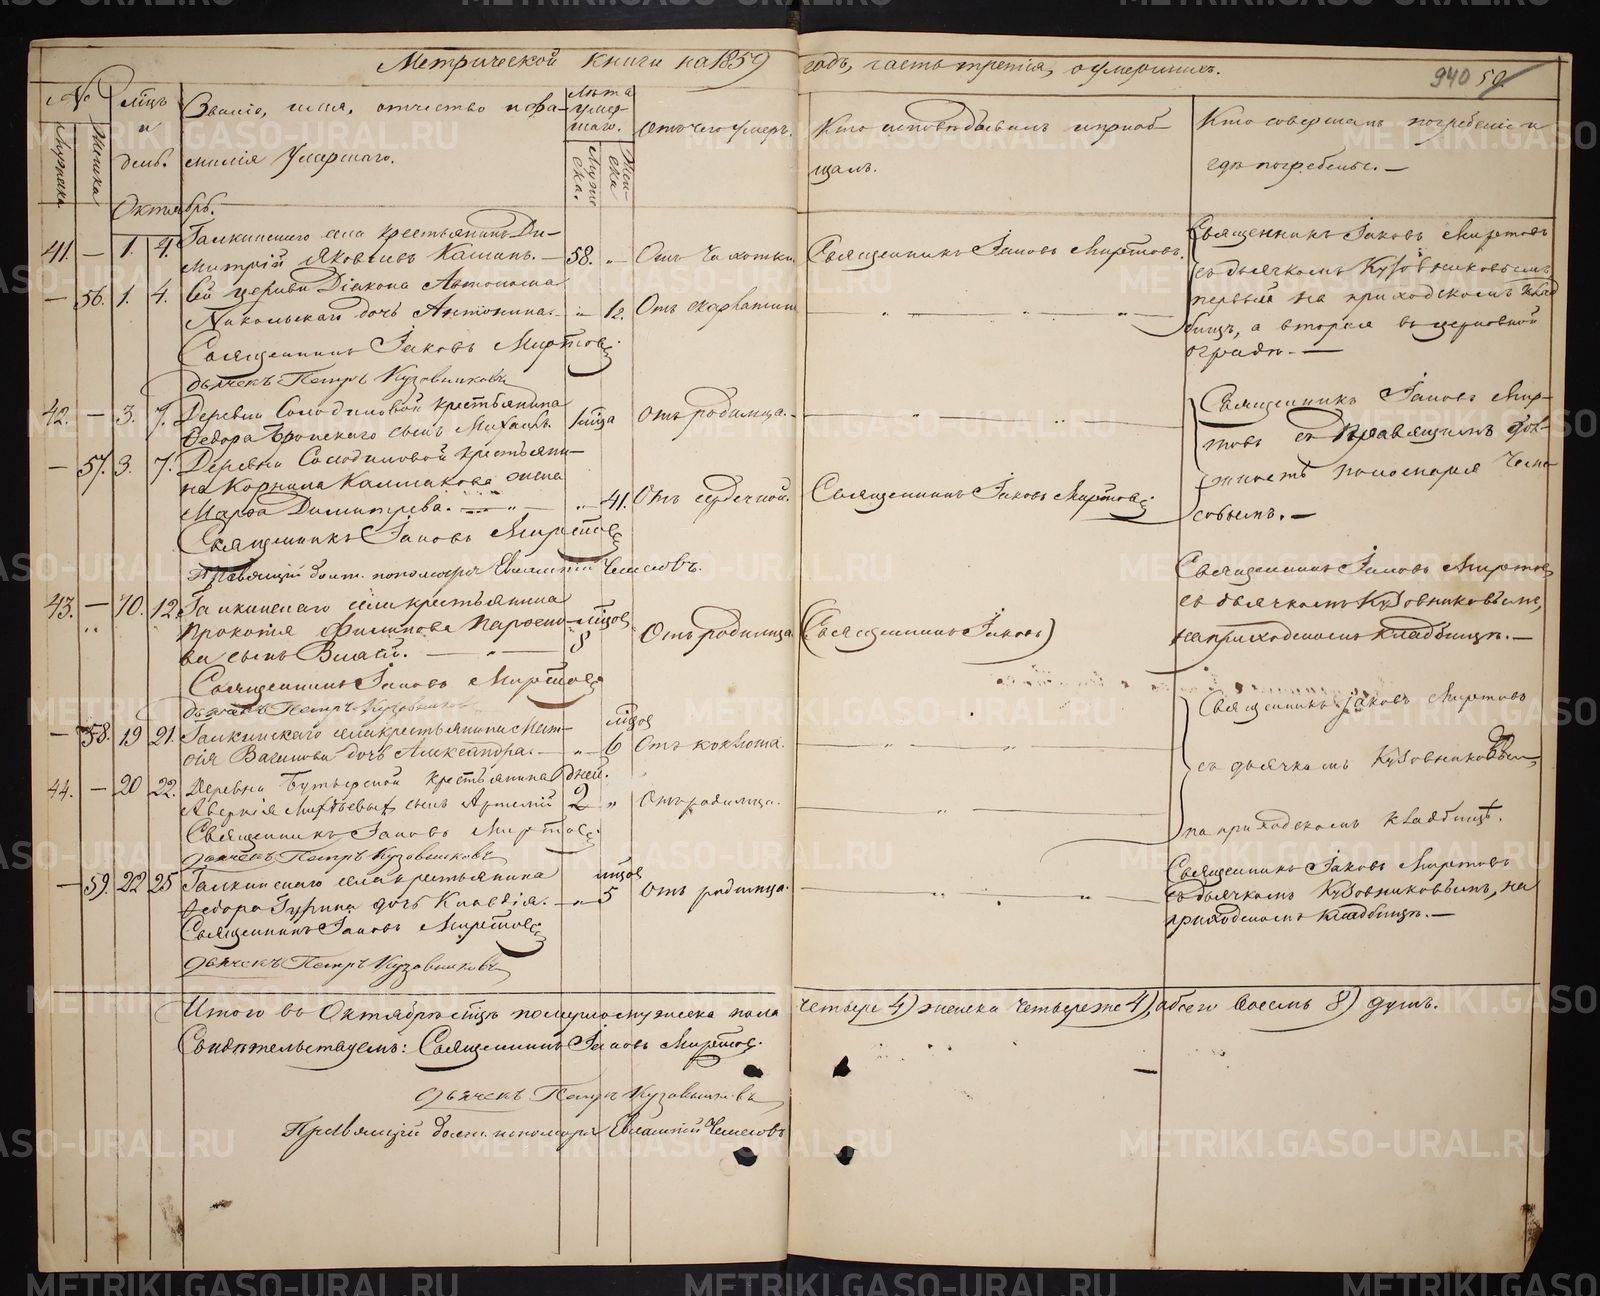 Метрической книги на 1859 годъ, часть третія, о умершихъ.
940 59
№
Мужска.
Женска
Мѣцъ и день.
Званіе, имя, отчество и фамилія умершаго.
Лѣта умершаго.
Мужеска.
Женска
Отъ чего умеръ.
Кто исповѣдывалъ и пріобщалъ.
Кто совершалъ погребеніе и гдѣ погребены. —
Октябрь.
41. — 1. 4. Галкинскаго села крестьянинъ Ди-
митрій Яковлевъ Кашинъ. — 58. „ Отъ чахотки Священникъ Іаковъ Миртовъ.
Священникъ Іаковъ Миртовъ
съ дьячкомъ Кузовниковымъ
первый на приходскомъ клад
бищѣ, а вторая въ церковной
оградѣ. —
— 56. 1. 4. Сей церкви Діакона Автонома
Никольскаго дочь Антонина. „ 12. Отъ скарлатины
Священникъ Іаковъ Миртовъ
дьячекъ Петръ Кузовниковъ
42. — 3. 7. Деревни Солодиловой крестьянина
Федора сынъ Михаилъ. 1 мѣца Отъ родимца. —
Священникъ Іаковъ Мир-
товъ съ правящимъ дол-
жность пономаря Чемо-
совымъ. —
— 57. 3. 7. Деревни Солодиловой крестьяни-
на Корнила Калмакова жена
Марѳа Димитрева. — „ 41. Отъ сердечной. Священникъ Іаковъ Миртовъ.
Священникъ Іаковъ Миртовъ
Правящій долж. пономаря
43. — 10. 12. Галкинскаго села крестьянина
Прокопія Филипова
ва сынъ — мѣцов 8 Отъ родимца (Священникъ Іаковъ)
Священникъ Іаковъ Миртовъ
съ дьячкомъ Кузовниковымъ,
на приходскомъ кладбищѣ. —
Священникъ Іаковъ Миртовъ
дьячекъ Петръ Кузовниковъ
— 58. 19 21. Галкинскаго села крестьянина Мат-
ѳія дочь Александра. — „ мѣцов 6 Отъ коклюша.
Священникъ Іаковъ Миртовъ
съ дьячкомъ Кузовниковым,
на приходскомъ кладбищѣ.
44. — 20 22. Деревни крестьянина
Аверкія сынъ Артемій дней. 2 „ Отъ родимца.
Священникъ Іаковъ Миртовъ
дьячекъ Петръ Кузовниковъ
— 59. 22 25 Галкинскаго села крестьянина
Федора Гурина дочь Клавдія. — „ мѣцов 5 Отъ родимца.
Священникъ Іаковъ Миртовъ
съ дьячкомъ Кузовниковымъ, на
приходскомъ кладбищѣ. —
Священникъ Іаковъ Миртовъ
дьячекъ Петръ Кузовниковъ
Итого въ Октябрѣ мѣцѣ померло мужеска пола четыре 4) женска четыре же 4), обоего восемь 8) душъ.
Свидѣтельствуемъ: Священникъ Іаковъ Миртовъ.
дьячекъ Петръ Кузовниковъ
Правящій долж. пономаря
METRIKI.GASO-URAL.RU